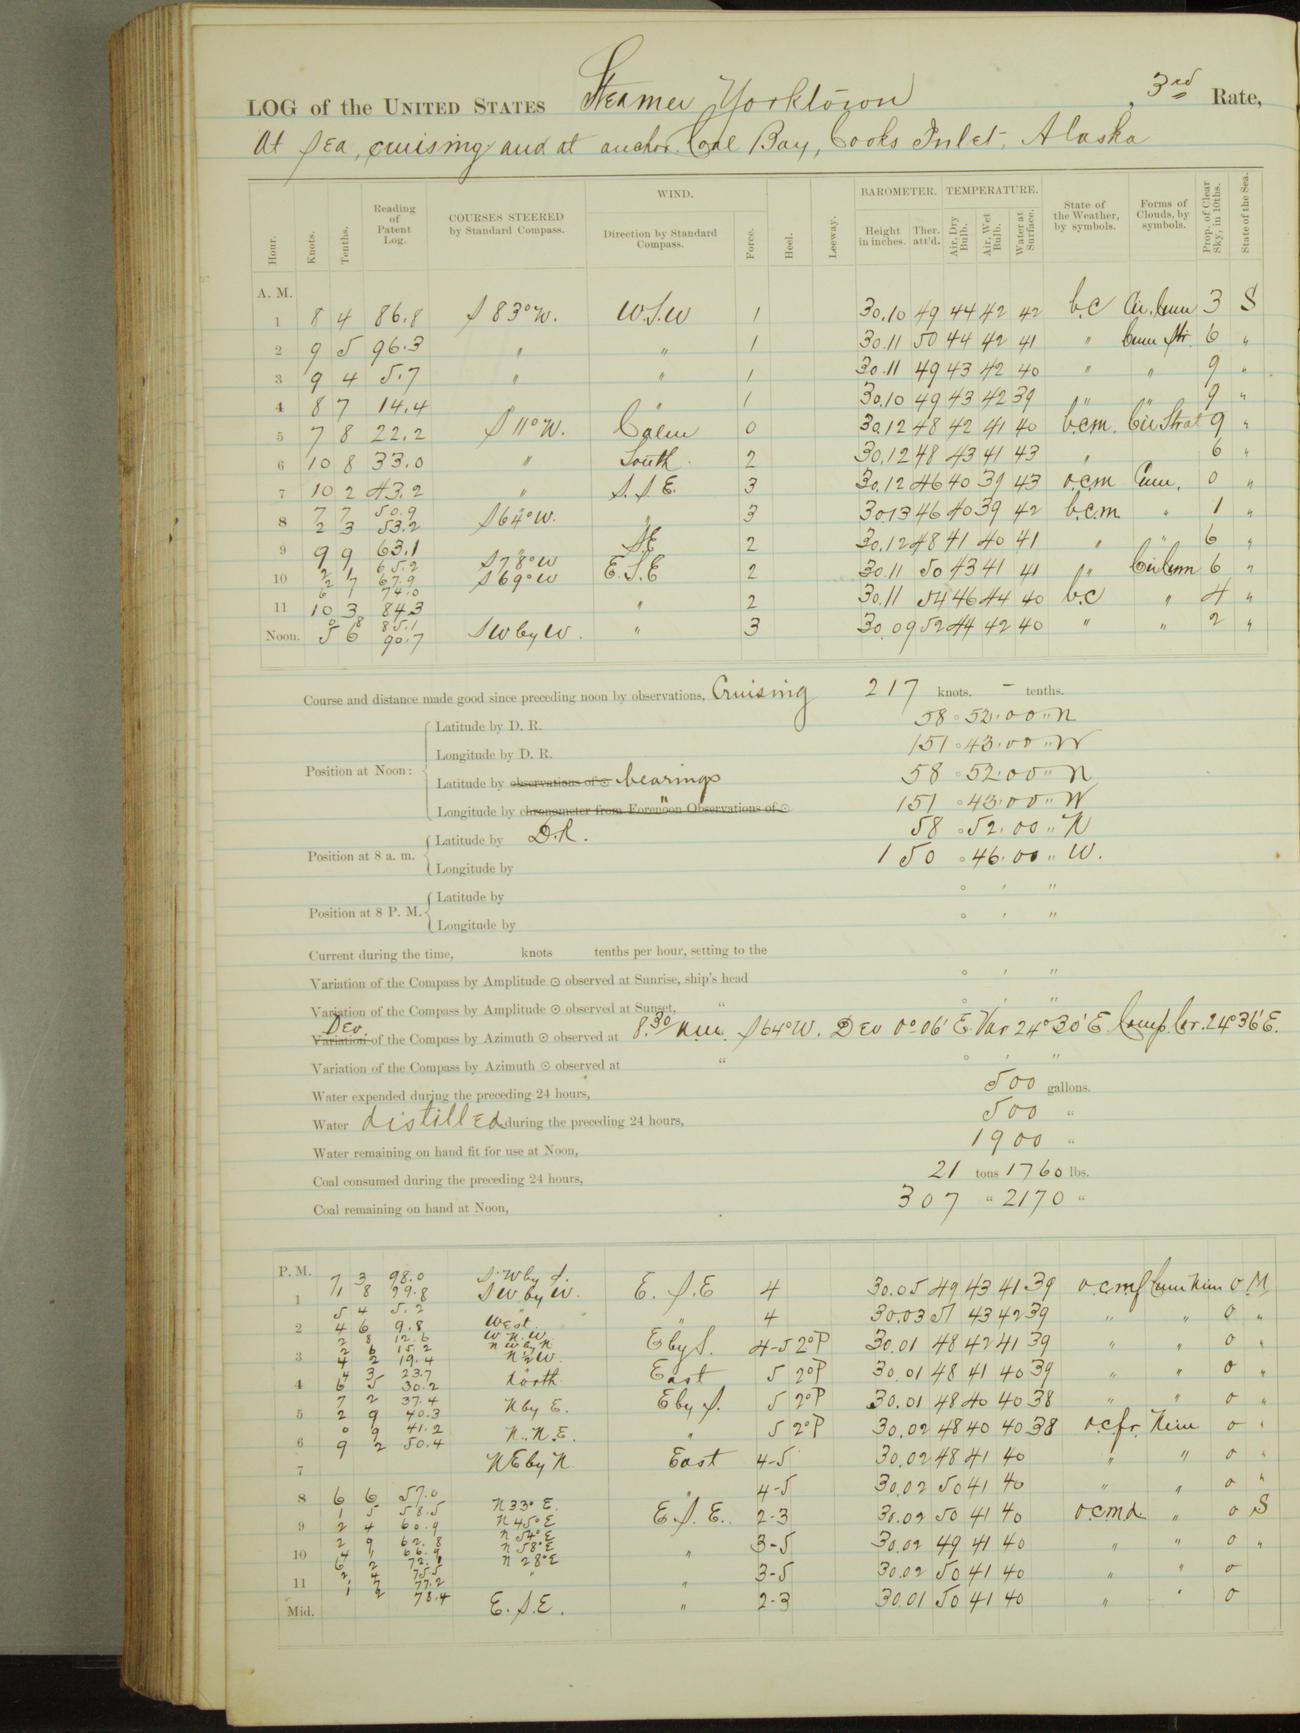 LOG of the UNITED STATES Steamer Yorktown, 3rd Rate,
At Sea, cruising and at anchor Coal Bay, Cooks Inlet, Alaska
Hour. Knots. Tenths. Reading of Patent Log. COURSES STEERED by Standard Compass. WIND. Direction by Standard Compass. Force. Heel. Leeway. BAROMETER. Height in inches. Ther. att'd. TEMPERATURE. Air, Dry Bulb. Air, Wet Bulb. Water at Surface. State of the Weather, by symbols. Forms of Clouds, by symbols. Prop. of Clear Sky, in 10ths. State of the Sea.
A. M.
1 8 4 86.8 S 83° W. W.S.W 1 30.10 49 44 42 42 b.c Cir. Cum 3 S
2 9 5 96.3 " " 1 30.11 50 44 42 41 " Cum Str. 6 "
3 9 4 5.7 " " 1 30.11 49 43 42 40 " " 9 "
4 8 7 14.4 " 1 30.10 49 43 42 39 " " 9 "
5 7 8 22.2 S 11° W. Calm 0 30.12 48 42 41 40 b.c.m. Cir Strat 9 "
6 10 8 33.0 " South. 2 30.12 48 43 41 43 " 6 "
7 10 2 43.2 " S.S.E. 3 30.12 46 40 39 43 o.c.m Cum. 0 "
7 7 50.9
8 2 3 53.2 S 64° W. " 3 30.13 46 40 39 42 b.c.m " 1 "
9 9 9 63.1 " S.E 2 30.12 48 41 40 41 " " 6 "
2 1 65.2 S 78° W
10 2 7 67.9 S 69° W E.S.E 2 30.11 50 43 41 41 " Cir Cum 6 "
6 1 74.0
11 10 3 84.3 " 2 30.11 54 46 44 40 b.c " 4 "
0 8 85.1
Noon. 5 6 90.7 SW by W. " 3 30.09 52 44 42 40 " " 2 "
Course and distance made good since preceding noon by observations, Cruising 217 knots. - tenths.
Position at Noon: Latitude by D. R. 58 ° 52 ' 00 " N
Longitude by D. R. 151 ° 43 ' 00 " W
Latitude by observations of ☉ bearings 58 ° 52 ' 00 " N
Longitude by chronometer from Forenoon Observations of ☉ " 151 ° 43 ' 00 " W
Position at 8 a. m. Latitude by D.R. 58 ° 52 ' 00 " N
Longitude by 150 ° 46 ' 00 " W.
Position at 8 P. M. Latitude by ° ' "
Longitude by ° ' "
Current during the time, knots tenths per hour, setting to the
Variation of the Compass by Amplitude ☉ observed at Sunrise, ship's head ° ' "
Variation of the Compass by Amplitude ☉ observed at Sunset, " ° ' "
Dev. Variation of the Compass by Azimuth ☉ observed at 8.30 A.M. S 64° W. Dev 0° 06' E Var 24° 30' E. Comp. Cor. 24° 36' E.
Variation of the Compass by Azimuth ☉ observed at " ° ' "
Water expended during the preceding 24 hours, 500 gallons.
Water distilled during the preceding 24 hours, 500 "
Water remaining on hand fit for use at Noon, 1900 "
Coal consumed during the preceding 24 hours, 21 tons 1760 lbs.
Coal remaining on hand at Noon, 307 " 2170 "
P. M.
7 3 98.0 S.W by S.
1 1 8 99.8 SW by W. E. S.E 4 30.05 49 43 41 39 o.c.m.f Cum Nim 0 M
5 4 5.2
2 4 6 9.8 West " 4 30.03 51 43 42 39 " " 0 "
2 8 12.6 W.N.W
2 6 15.2 NW by N
3 4 2 19.4 N ½ W. E by S. 4-5 2° P 30.01 48 42 41 39 " " 0 "
4 3 23.7
4 6 5 30.2 North East 5 2° P 30.01 48 41 40 39 " " 0 "
7 2 37.4
5 2 9 40.3 N by E. E by S. 5 2° P 30.01 48 40 40 38 " " 0 "
0 9 41.2
6 9 2 50.4 N.N.E. " 5 2° P 30.02 48 40 40 38 o.c.f.r. Nim 0 "
7 NE by N East 4-5 30.02 48 41 40 " " 0 "
8 6 6 57.0 " 4-5 30.02 50 41 40 " " 0 "
1 5 58.5 N 33° E.
9 2 4 60.9 N 45° E E.S.E. 2-3 30.02 50 41 40 o.c.m.d. " 0 S
N 54° E
2 9 N 58° E
10 4 1 N 28° E " 3-5 30.02 49 41 40 " " 0 "
6 2 "
11 3-5 30.02 50 41 40 " " 0
1 2 78.4
Mid. E.S.E. " 2-3 30.01 50 41 40 " " 0